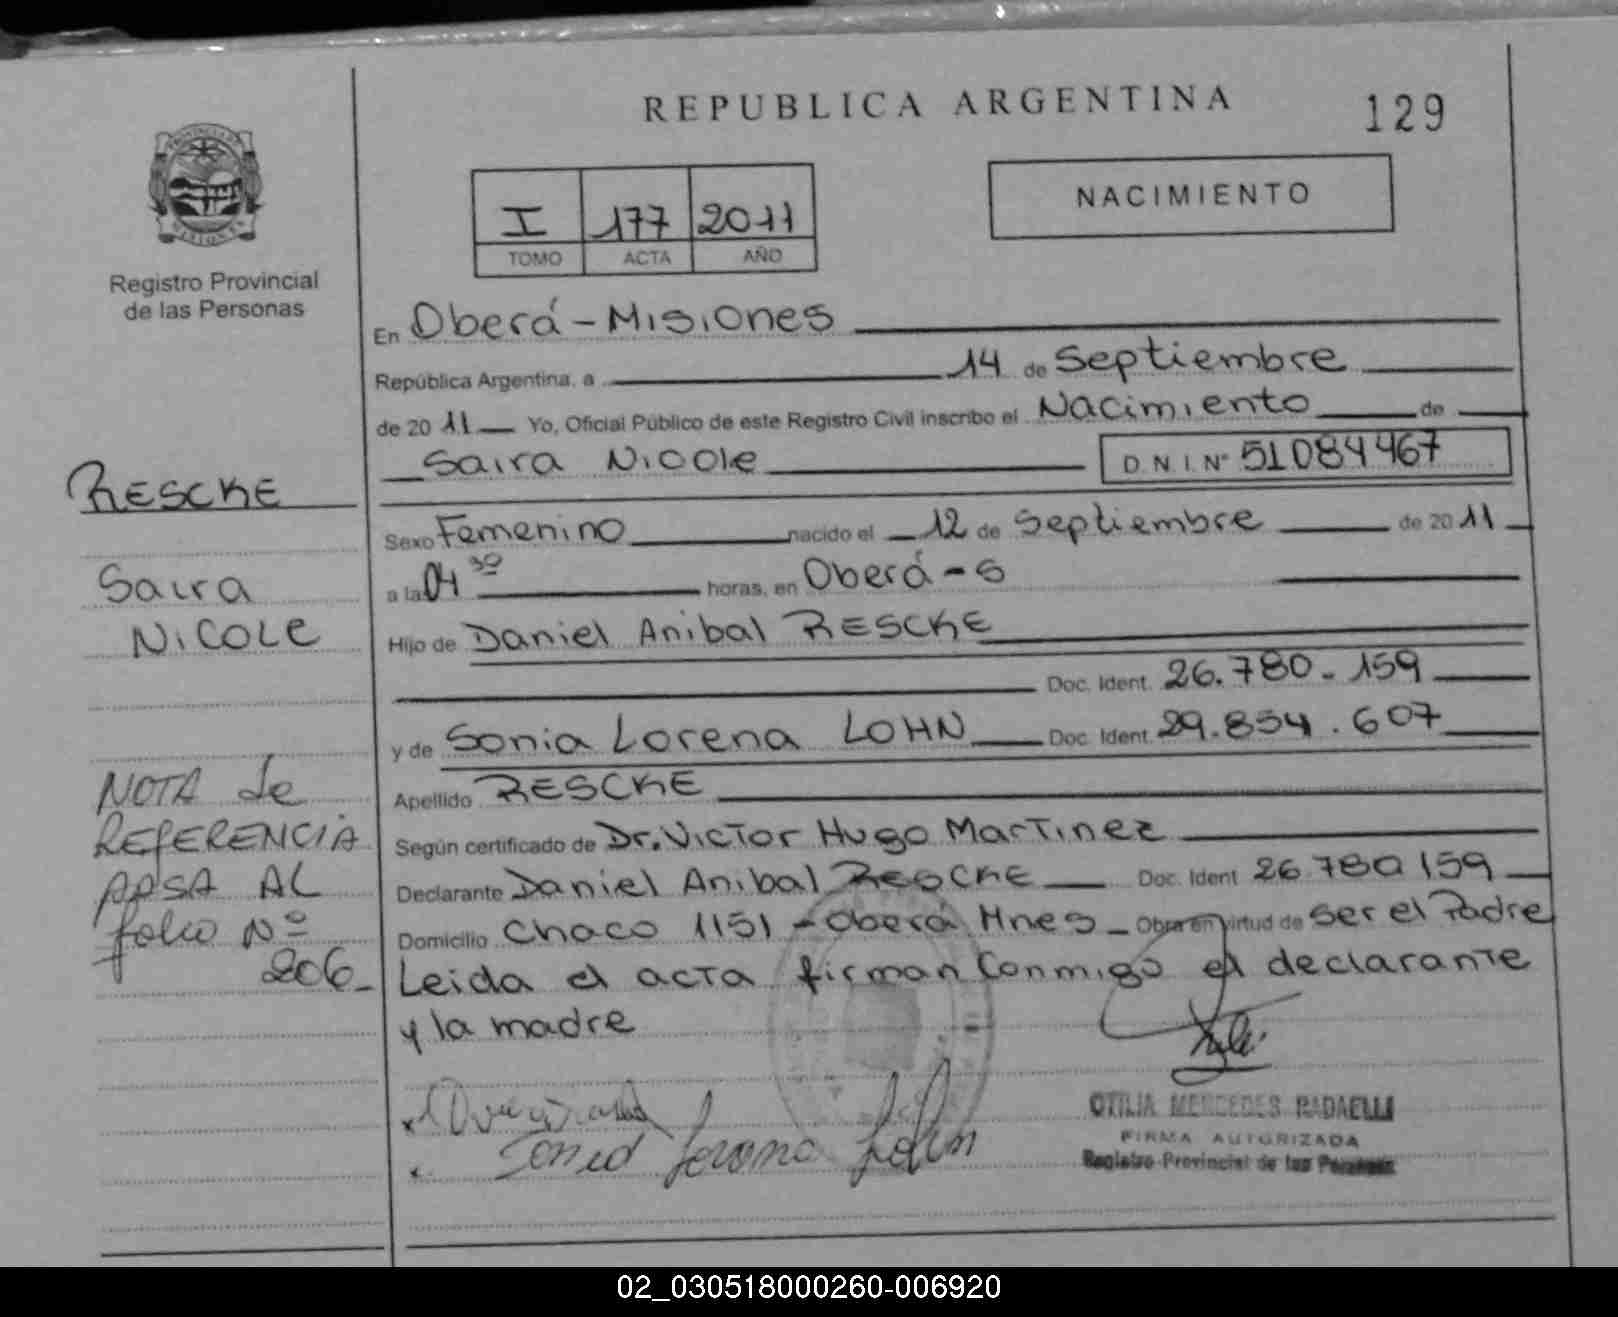 REPUBLICA ARGENTINA
129
PROVINCIA DE
MISIONES
Registro Provincial
de las Personas
I 177 2011
TOMO ACTA AÑO
NACIMIENTO
En Oberá - Misiones
República Argentina, a 14 de Septiembre
de 2011 Yo, Oficial Público de este Registro Civil inscribo el Nacimiento de
Saira Nicole D.N.I. N° 51084467
RESCKE
Sexo Femenino nacido el 12 de Septiembre de 2011
Saira
a las 04 30 horas, en Oberá - S
Nicole
Hijo de Daniel Anibal RESCKE
Doc. Ident. 26.780.159
y de Sonia Lorena LOHN Doc. Ident. 29.854.607
Apellido RESCKE
Según certificado de Dr. Victor Hugo Martinez
Declarante Daniel Anibal RESCKE Doc. Ident 26.780 159
Domicilio Chaco 1151 - Oberá Mnes - Obra en virtud de ser el Padre
Leida el acta firman Conmigo el declarante
y la madre
NOTA de
REFERENCIA
PASA AL
folio Nº
206 -
Lorena Lohn
OTILIA MERCEDES RADAELLI
FIRMA AUTORIZADA
Registro Provincial de las Personas
02_030518000260-006920